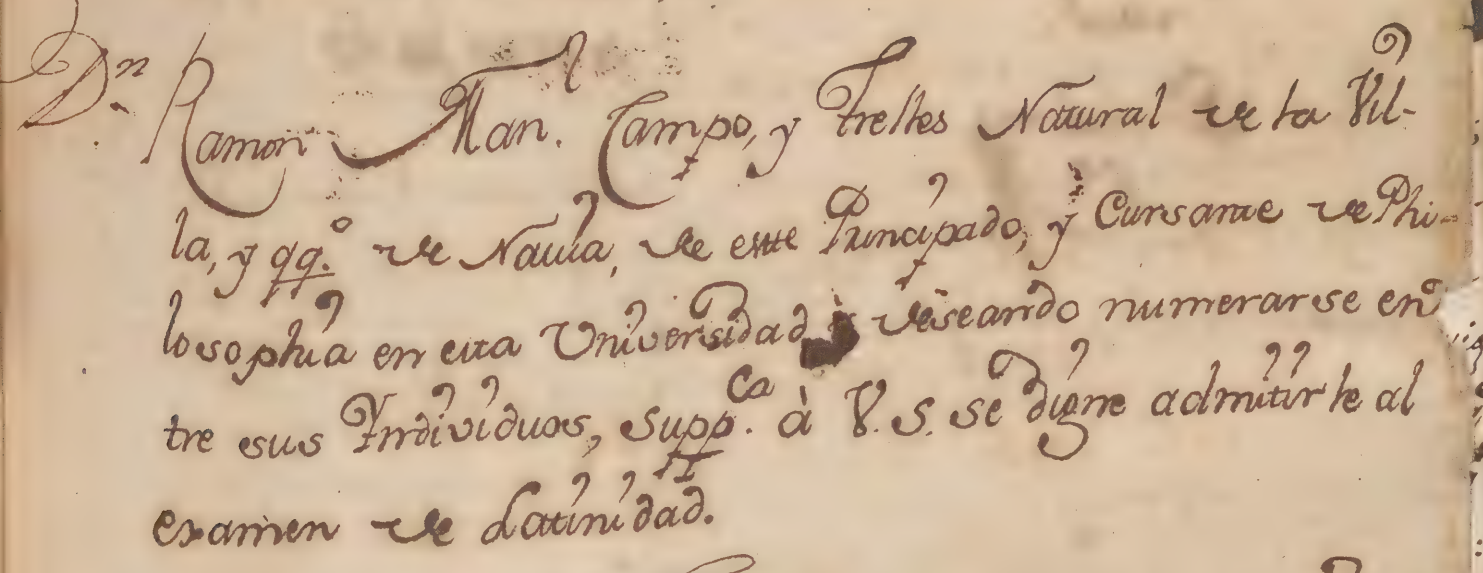 Dn Ramon Manl. Campo, y Trelles Natural de la Vil-
la, y qq.º de Navia, de este Principado, y Cursante de Phi-
losophia en esta Universidad deseando numerarse en
tre sus Individuos, Supp.ca à V. S. se digne admitirle al
examen de Latinidad.